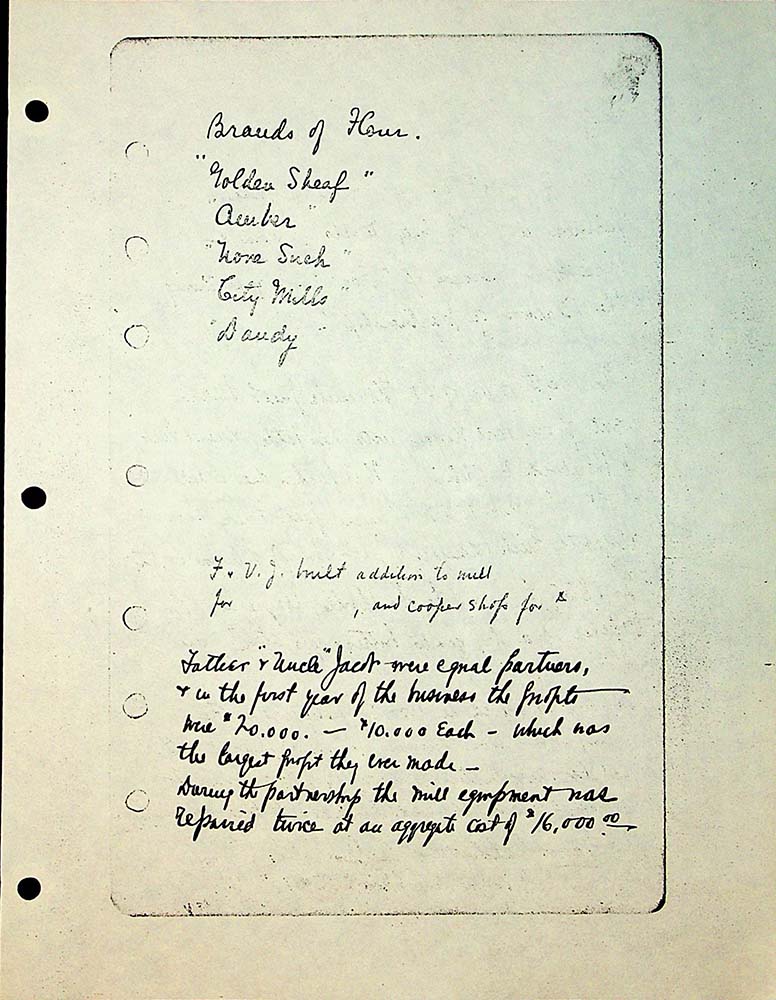 Brands of Flour.
"Golden Sheaf"
"Amber"
"None Such"
"City Mills"
"Dandy"
F & U. J. built addition to mill
for , and cooper shops for $
Father "& Uncle" Jacob were equal partners,
& in the first year of the business the profits
were $20.000. — $10.000 Each — which was
the largest profit they ever made —
During the partnership the mill equipment was
repaired twice at an aggregate cost of $16,000.00